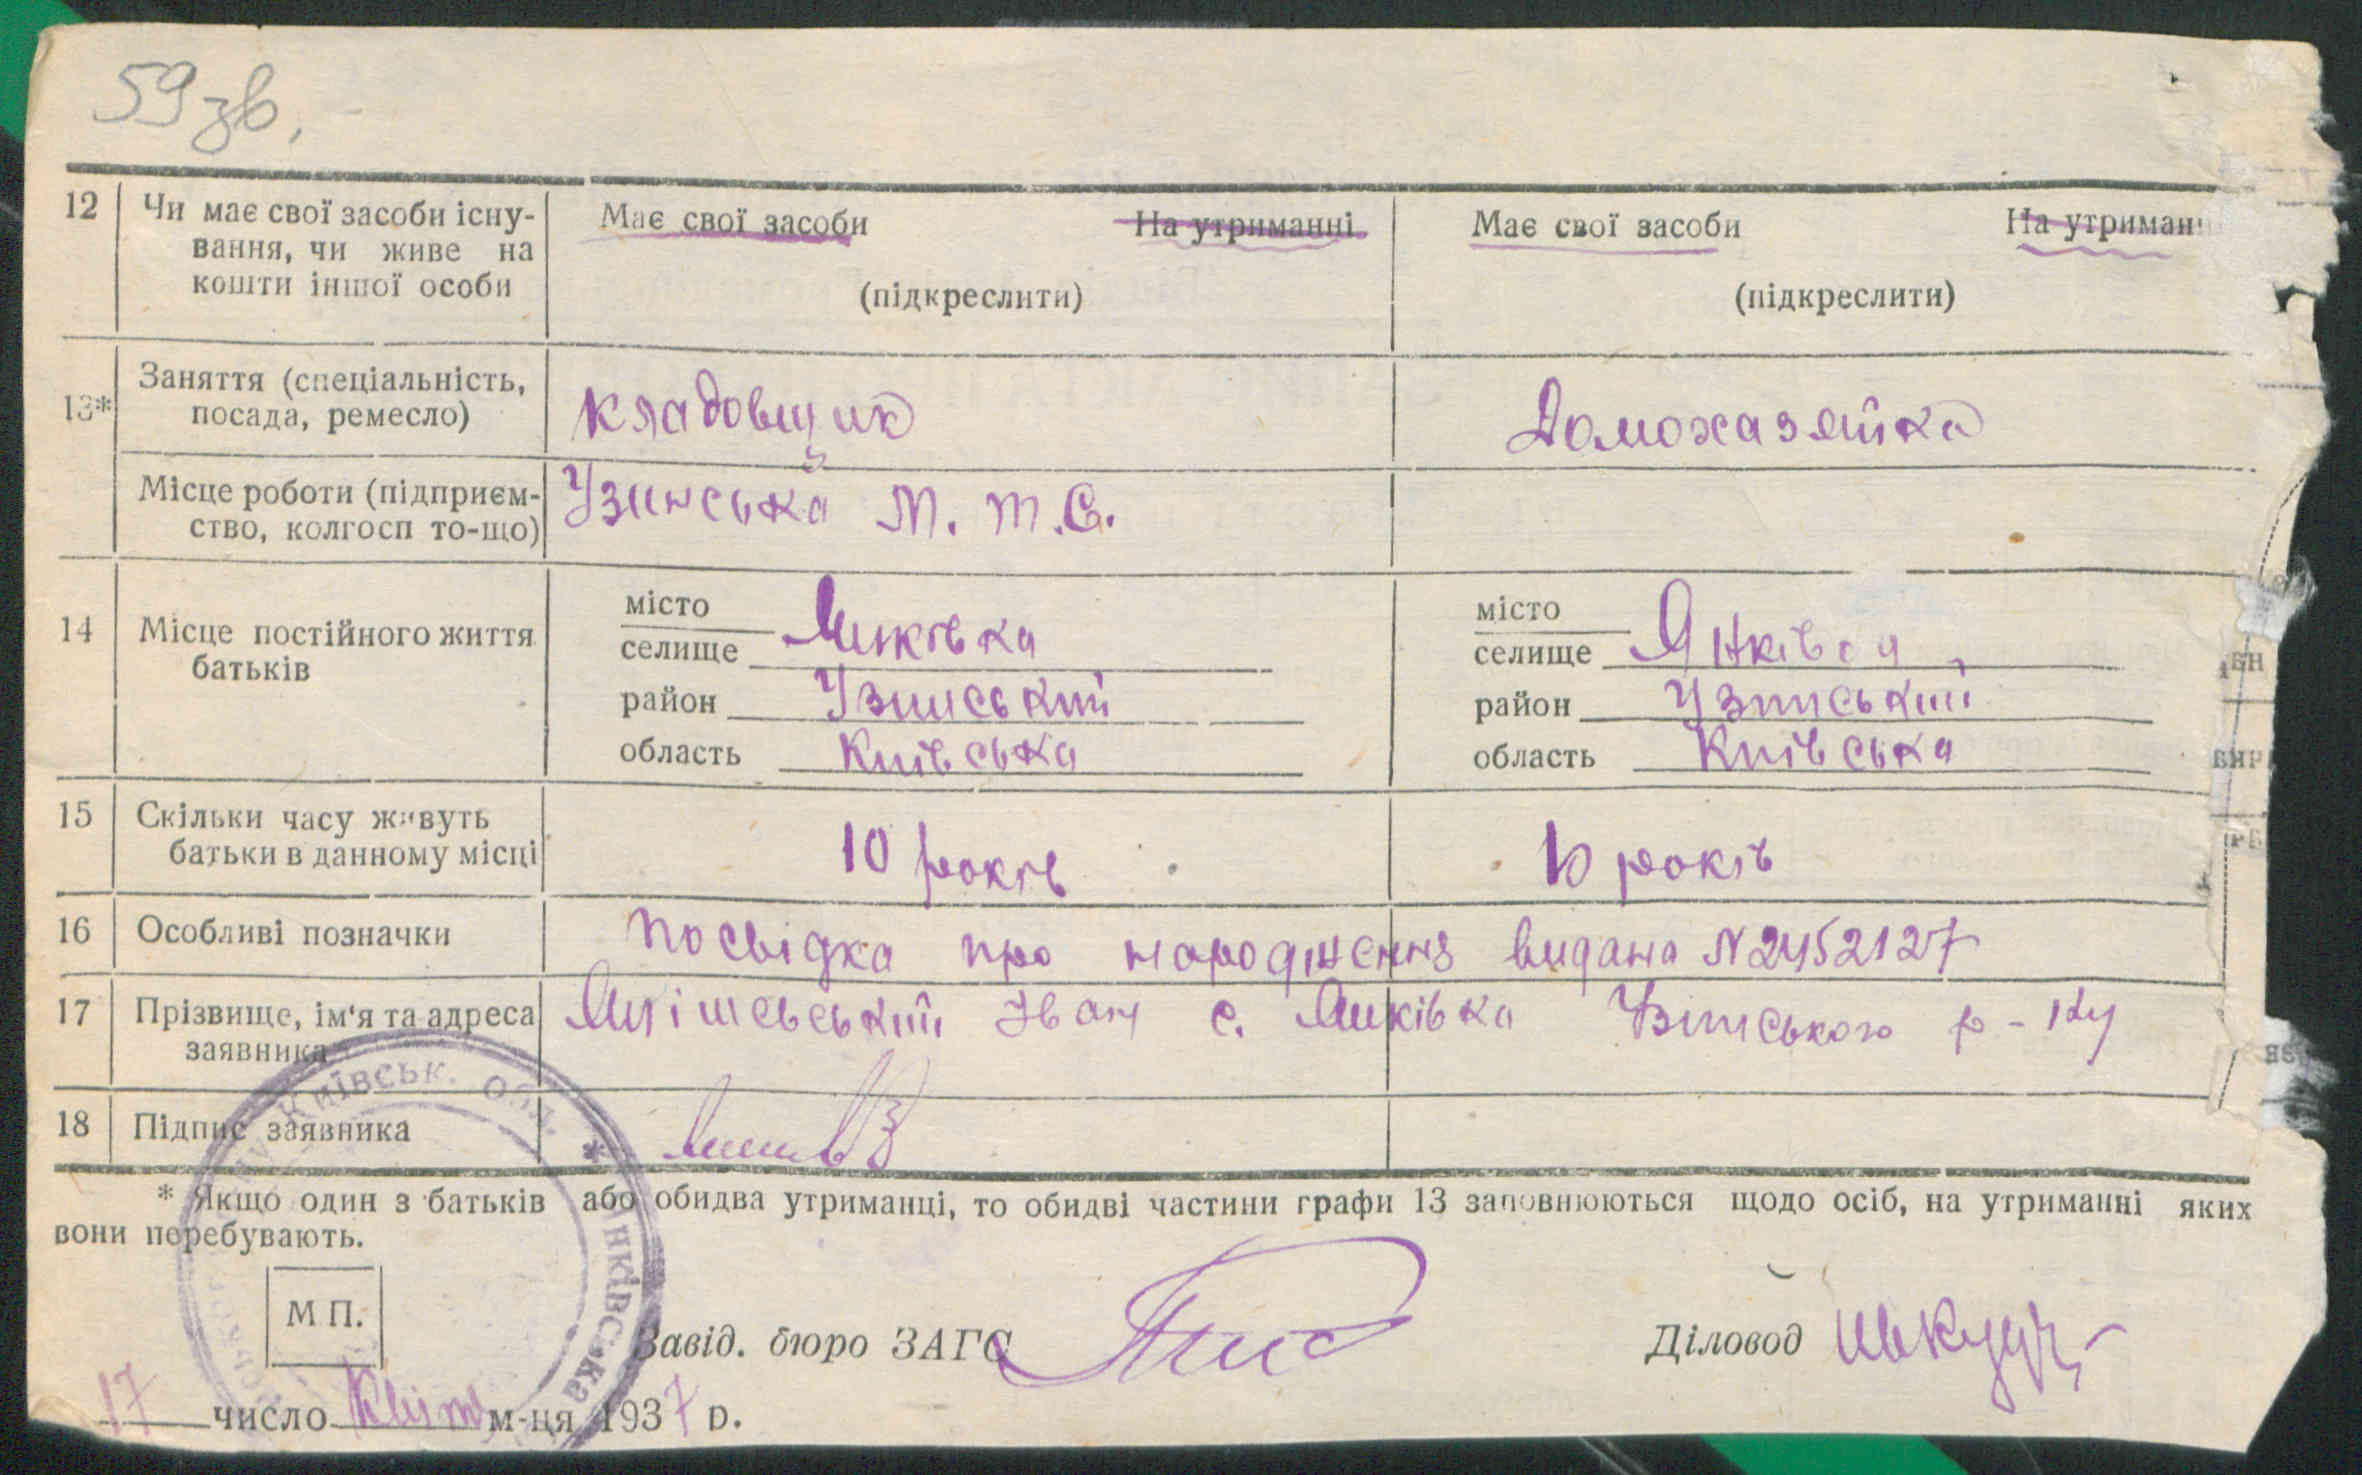 59 зв.
12 Чи має свої засоби існу- Має свої засоби На утриманні Має свої засоби На утриман
вання, чи живе на
кошти іншої особи (підкреслити) (підкреслити)
13* Заняття (спеціальність,
посада, ремесло) кладовщик Домохазяйка
Місце роботи (підприєм- Узинська М.Т.С.
ство, колгосп то-що)
14 Місце постійного життя
батьків
місто місто
селище Янківка селище Янківка
район Узинський район Узинський
область Київська область Київська
15 Скільки часу живуть
батьки в данному місці 10 років 10 років
16 Особливі позначки Посвідка про народження видана N 2452127
17 Прізвище, ім'я та адреса Іван с. Янківка Узинського р-ну
заявника
18 Підпис заявника
* Якщо один з батьків або обидва утриманці, то обидві частини графи 13 заповнюються щодо осіб, на утриманні яких
вони перебувають.
Київськ. Обл. * нківська
М П.
Завід. бюро ЗАГС Діловод
17 число Квітн м-ця 1937 р.